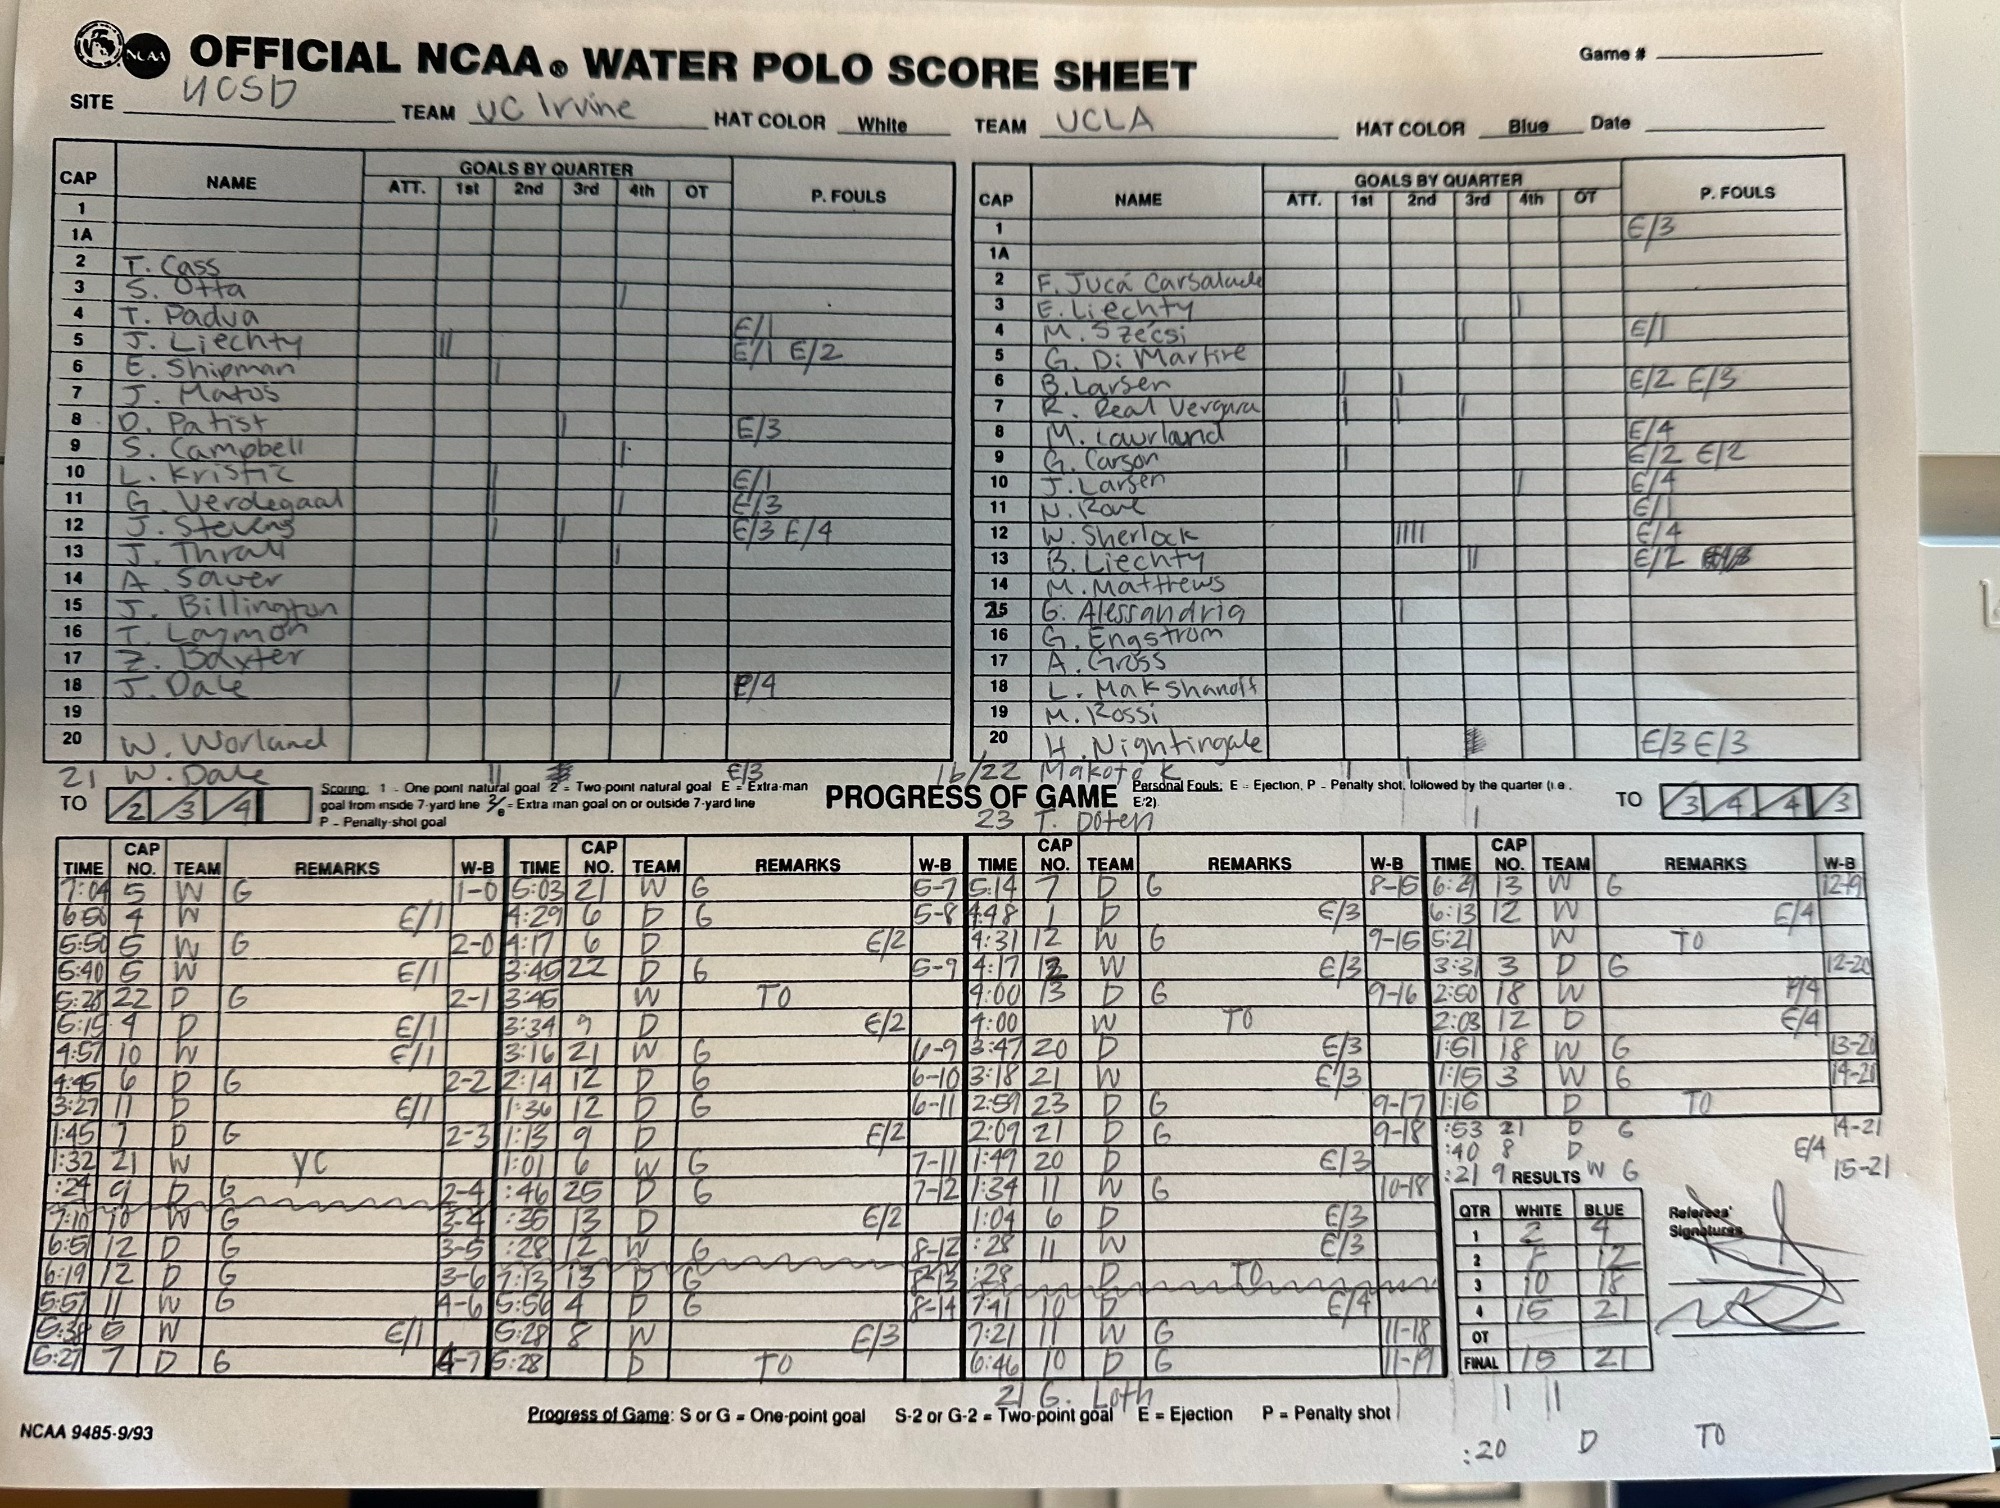 NCAA OFFICIAL NCAA® WATER POLO SCORE SHEET
Game #
SITE UCSD TEAM UC Irvine HAT COLOR White TEAM UCLA HAT COLOR Blue Date
CAP NAME GOALS BY QUARTER P. FOULS
ATT. 1st 2nd 3rd 4th OT
1
1A
2 T. Cass
3 S. Otta |
4 T. Padua E/1
5 J. Liechty || E/1 E/2
6 E. Shipman |
7 J. Matos
8 D. Patist | E/3
9 S. Campbell |
10 L. Kristic | E/1
11 G. Verdegaal | | E/3
12 J. Stevens | | E/3 E/4
13 J. Thrall |
14 A. Sauer
15 J. Billington
16 T. Laymon
17 Z. Baxter
18 J. Dale | P/4
19
20 W. Worland
21 W. Dale || E/3
CAP NAME GOALS BY QUARTER P. FOULS
ATT. 1st 2nd 3rd 4th OT
1 E/3
1A
2 F. Jucá Carsalade
3 E. Liechty |
4 M. Szécsi | E/1
5 G. Di Martire
6 B. Larsen | | E/2 E/3
7 R. Real Vergara | | |
8 M. Lawrland E/4
9 G. Carson | E/2 E/2
10 J. Larsen | E/4
11 N. E/1
12 W. Sherlock |||| E/4
13 B. Liechty || E/2
14 M. Matthews
25 G. Alessandria |
16 G. Engstrom
17 A. Gross
18 L. Makshanoff
19 M. Rossi
20 H. Nightingale E/3 E/3
16/22 Makoto K | |
TO /2 /3 /4
Scoring: 1 - One point natural goal 2 = Two-point natural goal E = Extra-man
goal from inside 7-yard line 2/e = Extra man goal on or outside 7-yard line
P - Penalty-shot goal
PROGRESS OF GAME
Personal Fouls: E - Ejection, P - Penalty shot, followed by the quarter (i.e.
E/2).
TO /3 /4 /4 /3
23 T. Doten |
TIME CAP NO. TEAM REMARKS W-B
7:04 5 W G 1-0
6:50 4 W E/1
5:50 5 W G 2-0
5:40 5 W E/1
5:28 22 D G 2-1
5:15 4 D E/1
4:57 10 W E/1
4:45 6 D G 2-2
3:27 11 D E/1
1:45 7 D G 2-3
1:32 21 W YC
:24 9 D G 2-4
7:10 10 W G 3-4
6:51 12 D G 3-5
6:19 12 D G 3-6
5:57 11 W G 4-6
5:38 5 W E/1
5:27 7 D G 4-7
TIME CAP NO. TEAM REMARKS W-B
5:03 21 W G 5-7
4:29 6 D G 5-8
4:17 6 D E/2
3:45 22 D G 5-9
3:45 W TO
3:34 9 D E/2
3:16 21 W G 6-9
2:14 12 D G 6-10
1:36 12 D G 6-11
1:13 9 D E/2
1:01 6 W G 7-11
:46 25 D G 7-12
:35 13 D E/2
:28 12 W G 8-12
7:13 13 D G 8-13
5:56 4 D G 8-14
5:28 8 W E/3
5:28 D TO
TIME CAP NO. TEAM REMARKS W-B
5:14 7 D G 8-15
4:48 1 D E/3
4:31 12 W G 9-15
4:17 12 W E/3
4:00 13 D G 9-16
4:00 W TO
3:47 20 D E/3
3:18 21 W E/3
2:59 23 D G 9-17
2:09 21 D G 9-18
1:49 20 D E/3
1:34 11 W G 10-18
1:04 6 D E/3
:28 11 W E/3
:28 D TO
7:41 10 D E/4
7:21 11 W G 11-18
6:46 10 D G 11-19
TIME CAP NO. TEAM REMARKS W-B
6:29 13 W G 12-19
6:13 12 W E/4
5:21 W TO
3:31 3 D G 12-20
2:50 18 W P/4
2:03 12 D E/4
1:51 18 W G 13-20
1:15 3 W G 14-20
1:15 D TO
:53 21 D G 14-21
:40 8 D E/4
:21 9 W G 15-21
RESULTS
QTR WHITE BLUE
1 2 4
2 12
3 10 18
4 15 21
OT
FINAL 15 21
Referees'
Signatures
21 G. Loth | ||
Progress of Game: S or G = One-point goal S-2 or G-2 = Two-point goal E = Ejection P = Penalty shot
NCAA 9485-9/93
:20 D TO